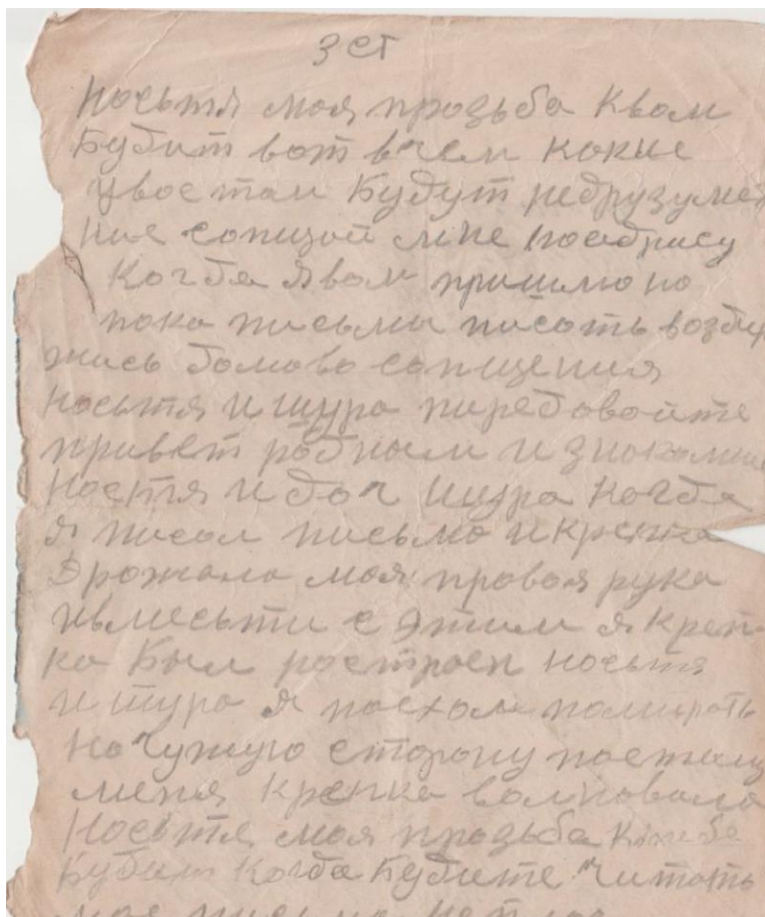 3 ст
Носьтя моя прозьба Квом
Будит вот вчем кокие
Увос там Будут недрузуме
ние сопщой мне поадрису
Когда Явом пришлю но
пока письмы писоть возди
жись домово сопщения
Носьтя и шура пиредовойте
привет родным и зноком
Ностя и доч шура Когда
я писол письмо и крепка
Дрожала моя провоя рука
ивместьти с этим я креп
ко Был ростроен Носьтя
и шура я поехол помироть
На чужую сторону
меня крепка волновала
Носьтя моя прозьба
Будит Когда Будите Читоть
мое письмо